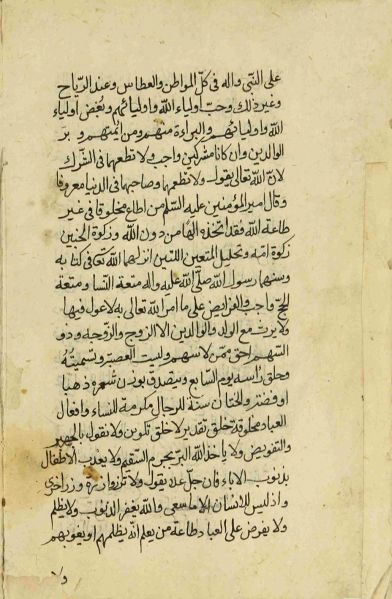 على النبي واله في كل المواطن والعطاس وعند الرياح
وغير ذلك وحب اولياء الله واوليائهم وبغض اولياء
الله واوليائهم والبراءة منهم ومن ائمتهم وبر
الوالدين وان كانا مشركين واجب ولا تطعهما في الشرك
لان الله تعالى يقول ولا تطعهما وصاحبهما في الدنيا معروفا
وقال امير المؤمنين عليه السلام من اطاع مخلوقا في غير
طاعة الله فقد اتخذه الها من دون الله وزكوة الجنين
زكوة امه وتحليل المتعين اللتين انزلهما الله تعا في كتابه
وسنهما رسول الله صلى الله عليه واله متعة النسا ومتعة
الحج واجب والفرايض على ما امر الله تعالى به لا عول فيها
ولا يرث مع الولد والوالدين الا الزوج والزوجه وذو
السهم احق ممن لا سهم وليست العصبة وتسميته
وحلق راسه يوم السابع ويتصدق بوزن شعره ذهبا
او فضة والختان سنة للرجال مكرمة للنساء وافعال
العباد مخلوقة خلق تقدير لا خلق تكوين ولا نقول بالجبر
والتفويض ولا ياخذ الله البرئ بجرم السقيم ولا يعذب الاطفال
بذنوب الاباء فان جل علا يقول ولا تزر وازرة وزر اخرى
واذ ليس للانسان الا ما سعى والله يغفر الذنوب ولا يظلم
ولا يفرض على العباد طاعة من يعلم انه يظلمهم او يغويهم
ولا